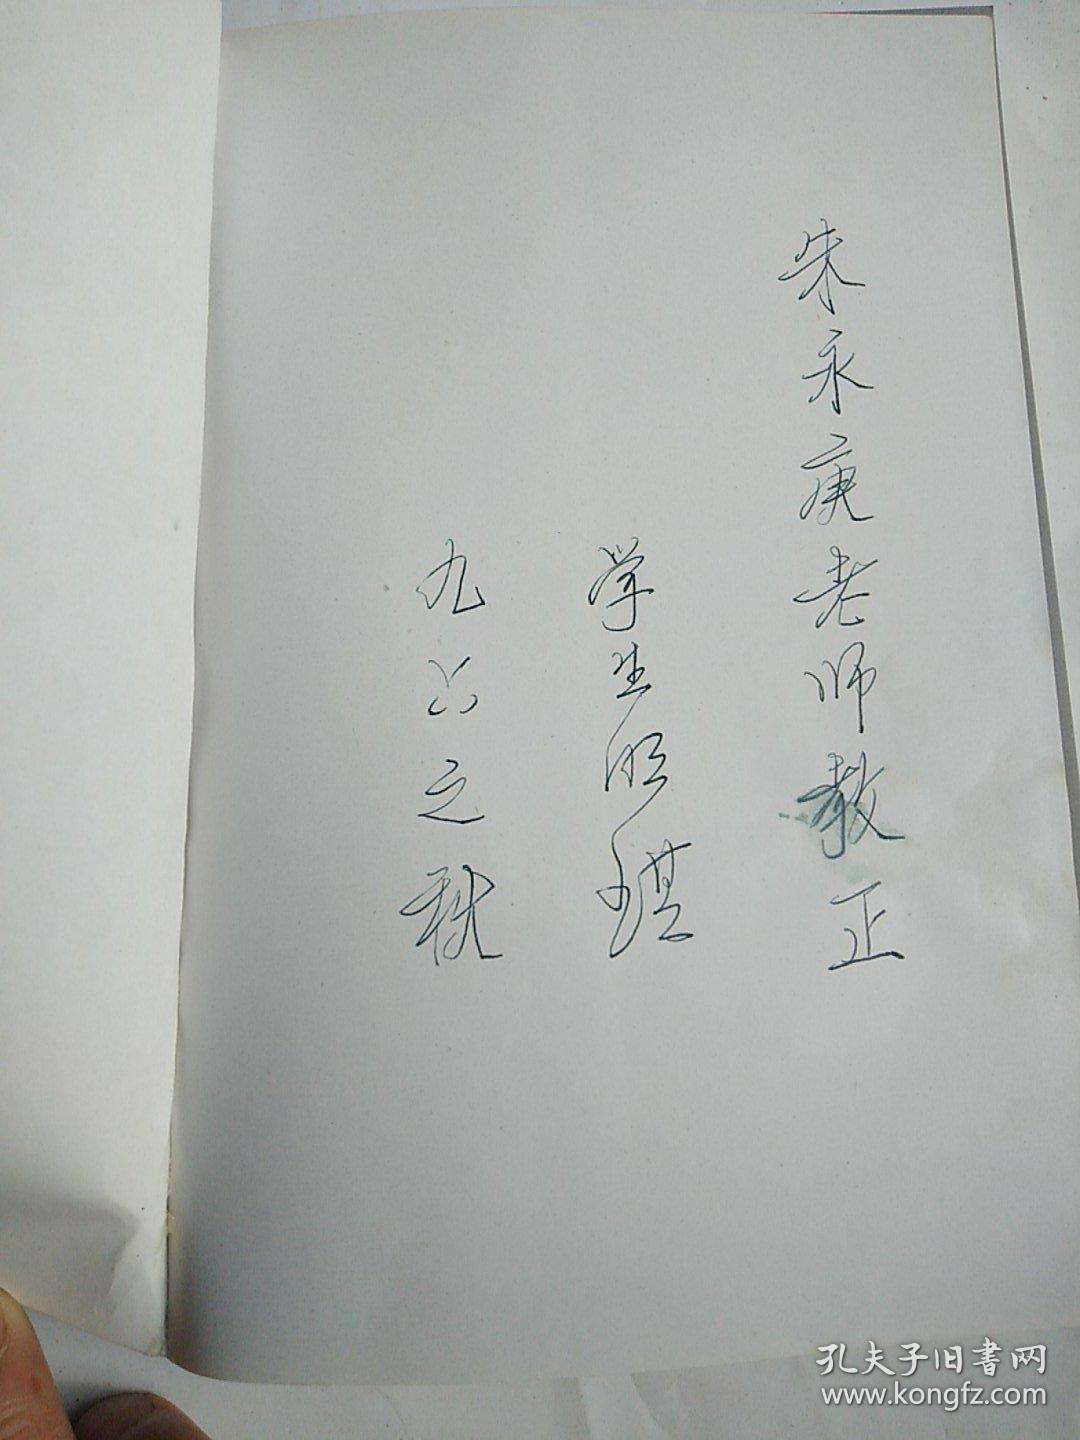 朱永庚老师教正
学生明琪
九六之秋
孔夫子旧書网
www.kongfz.com